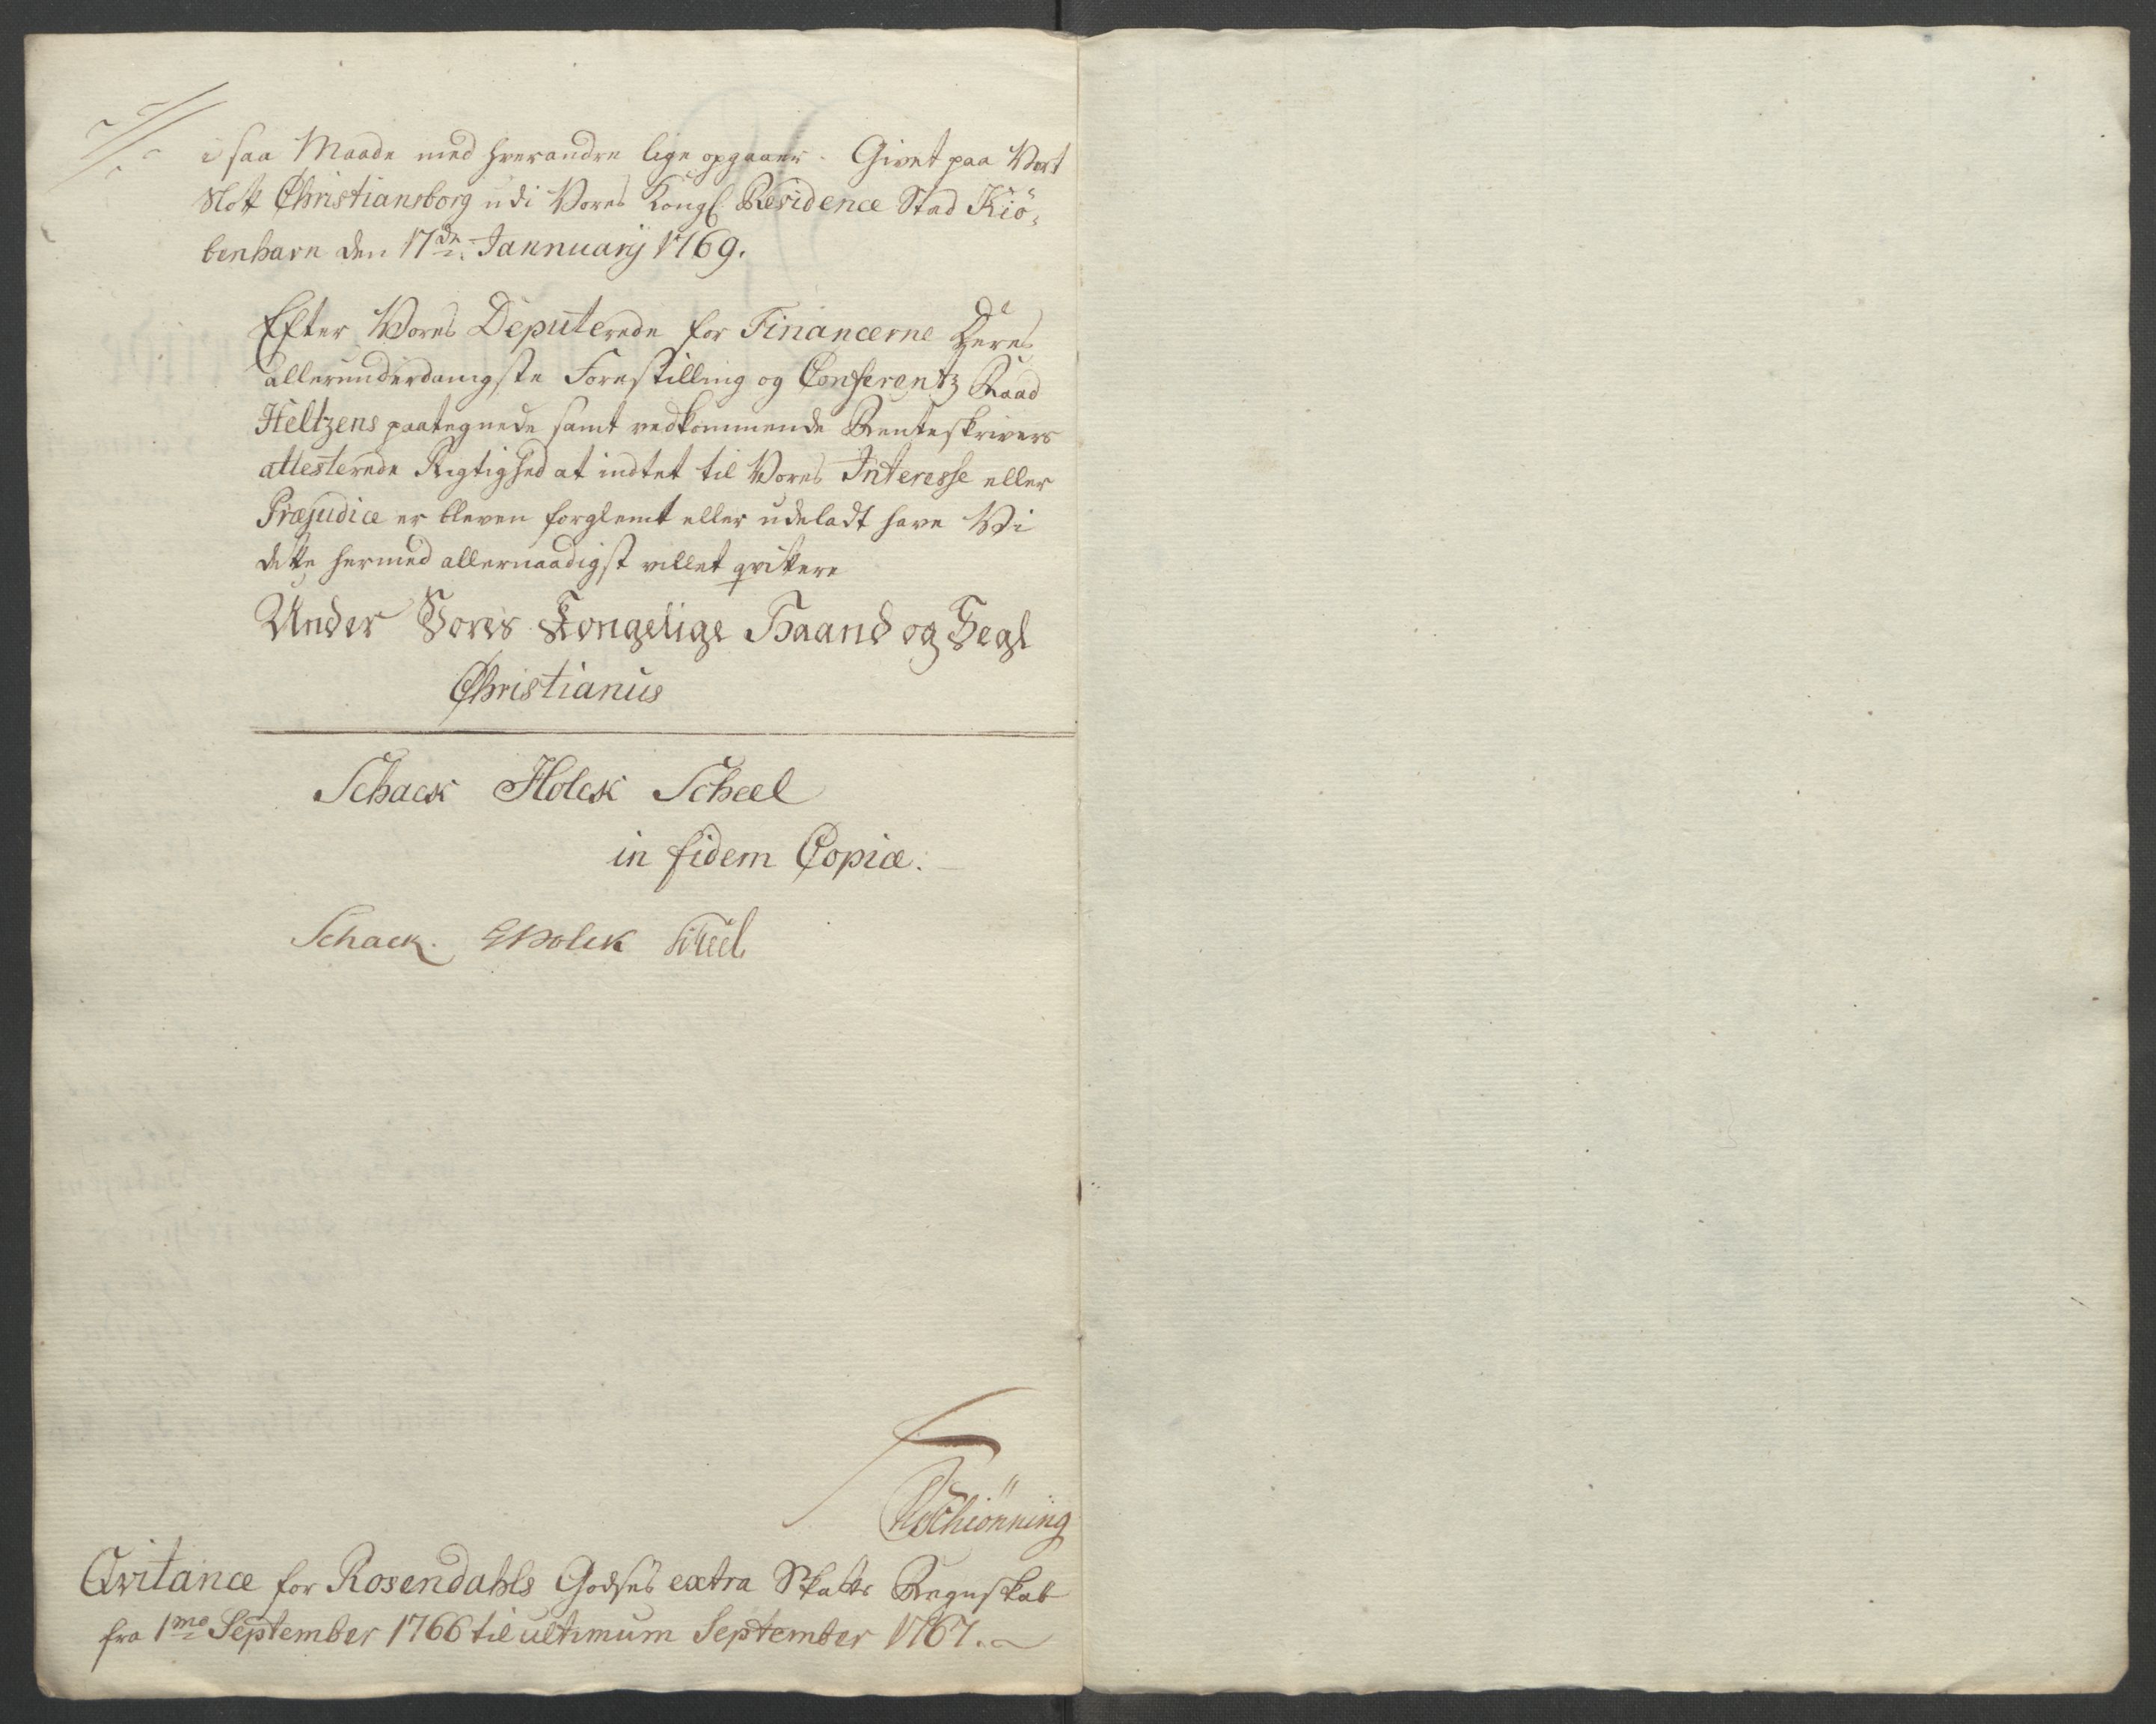 i saa Maade med hverandre lige opgaaer. Givet paa Vort
Slott Christiansborg udi Vores Kongl Residence Stad Kiö-
benhavn den 17de Jannuarij 1769.
Efter Vores Deputerede for Financerne Deres
allerunderdanigste Forestilling og Conferentz Raad
Heltzens paategnede samt vedkommende Renteskrivers
attesterede Rigtighed at indtet til Vores Interesse eller
Præjudice er bleven forglemt eller udeladt have Vi
dette hermed allernaadigst villet qvittere
Under Vores Kongelige Haand og Segl
Christianus
Schack Holck Scheel
in fidem Copiæ.
Schack. Holck Scheel
Schiönning
Qvitance for Rosendahls Godses extra Skatts Regnskab
fra 1mo September 1766 til ultimum September 1767.